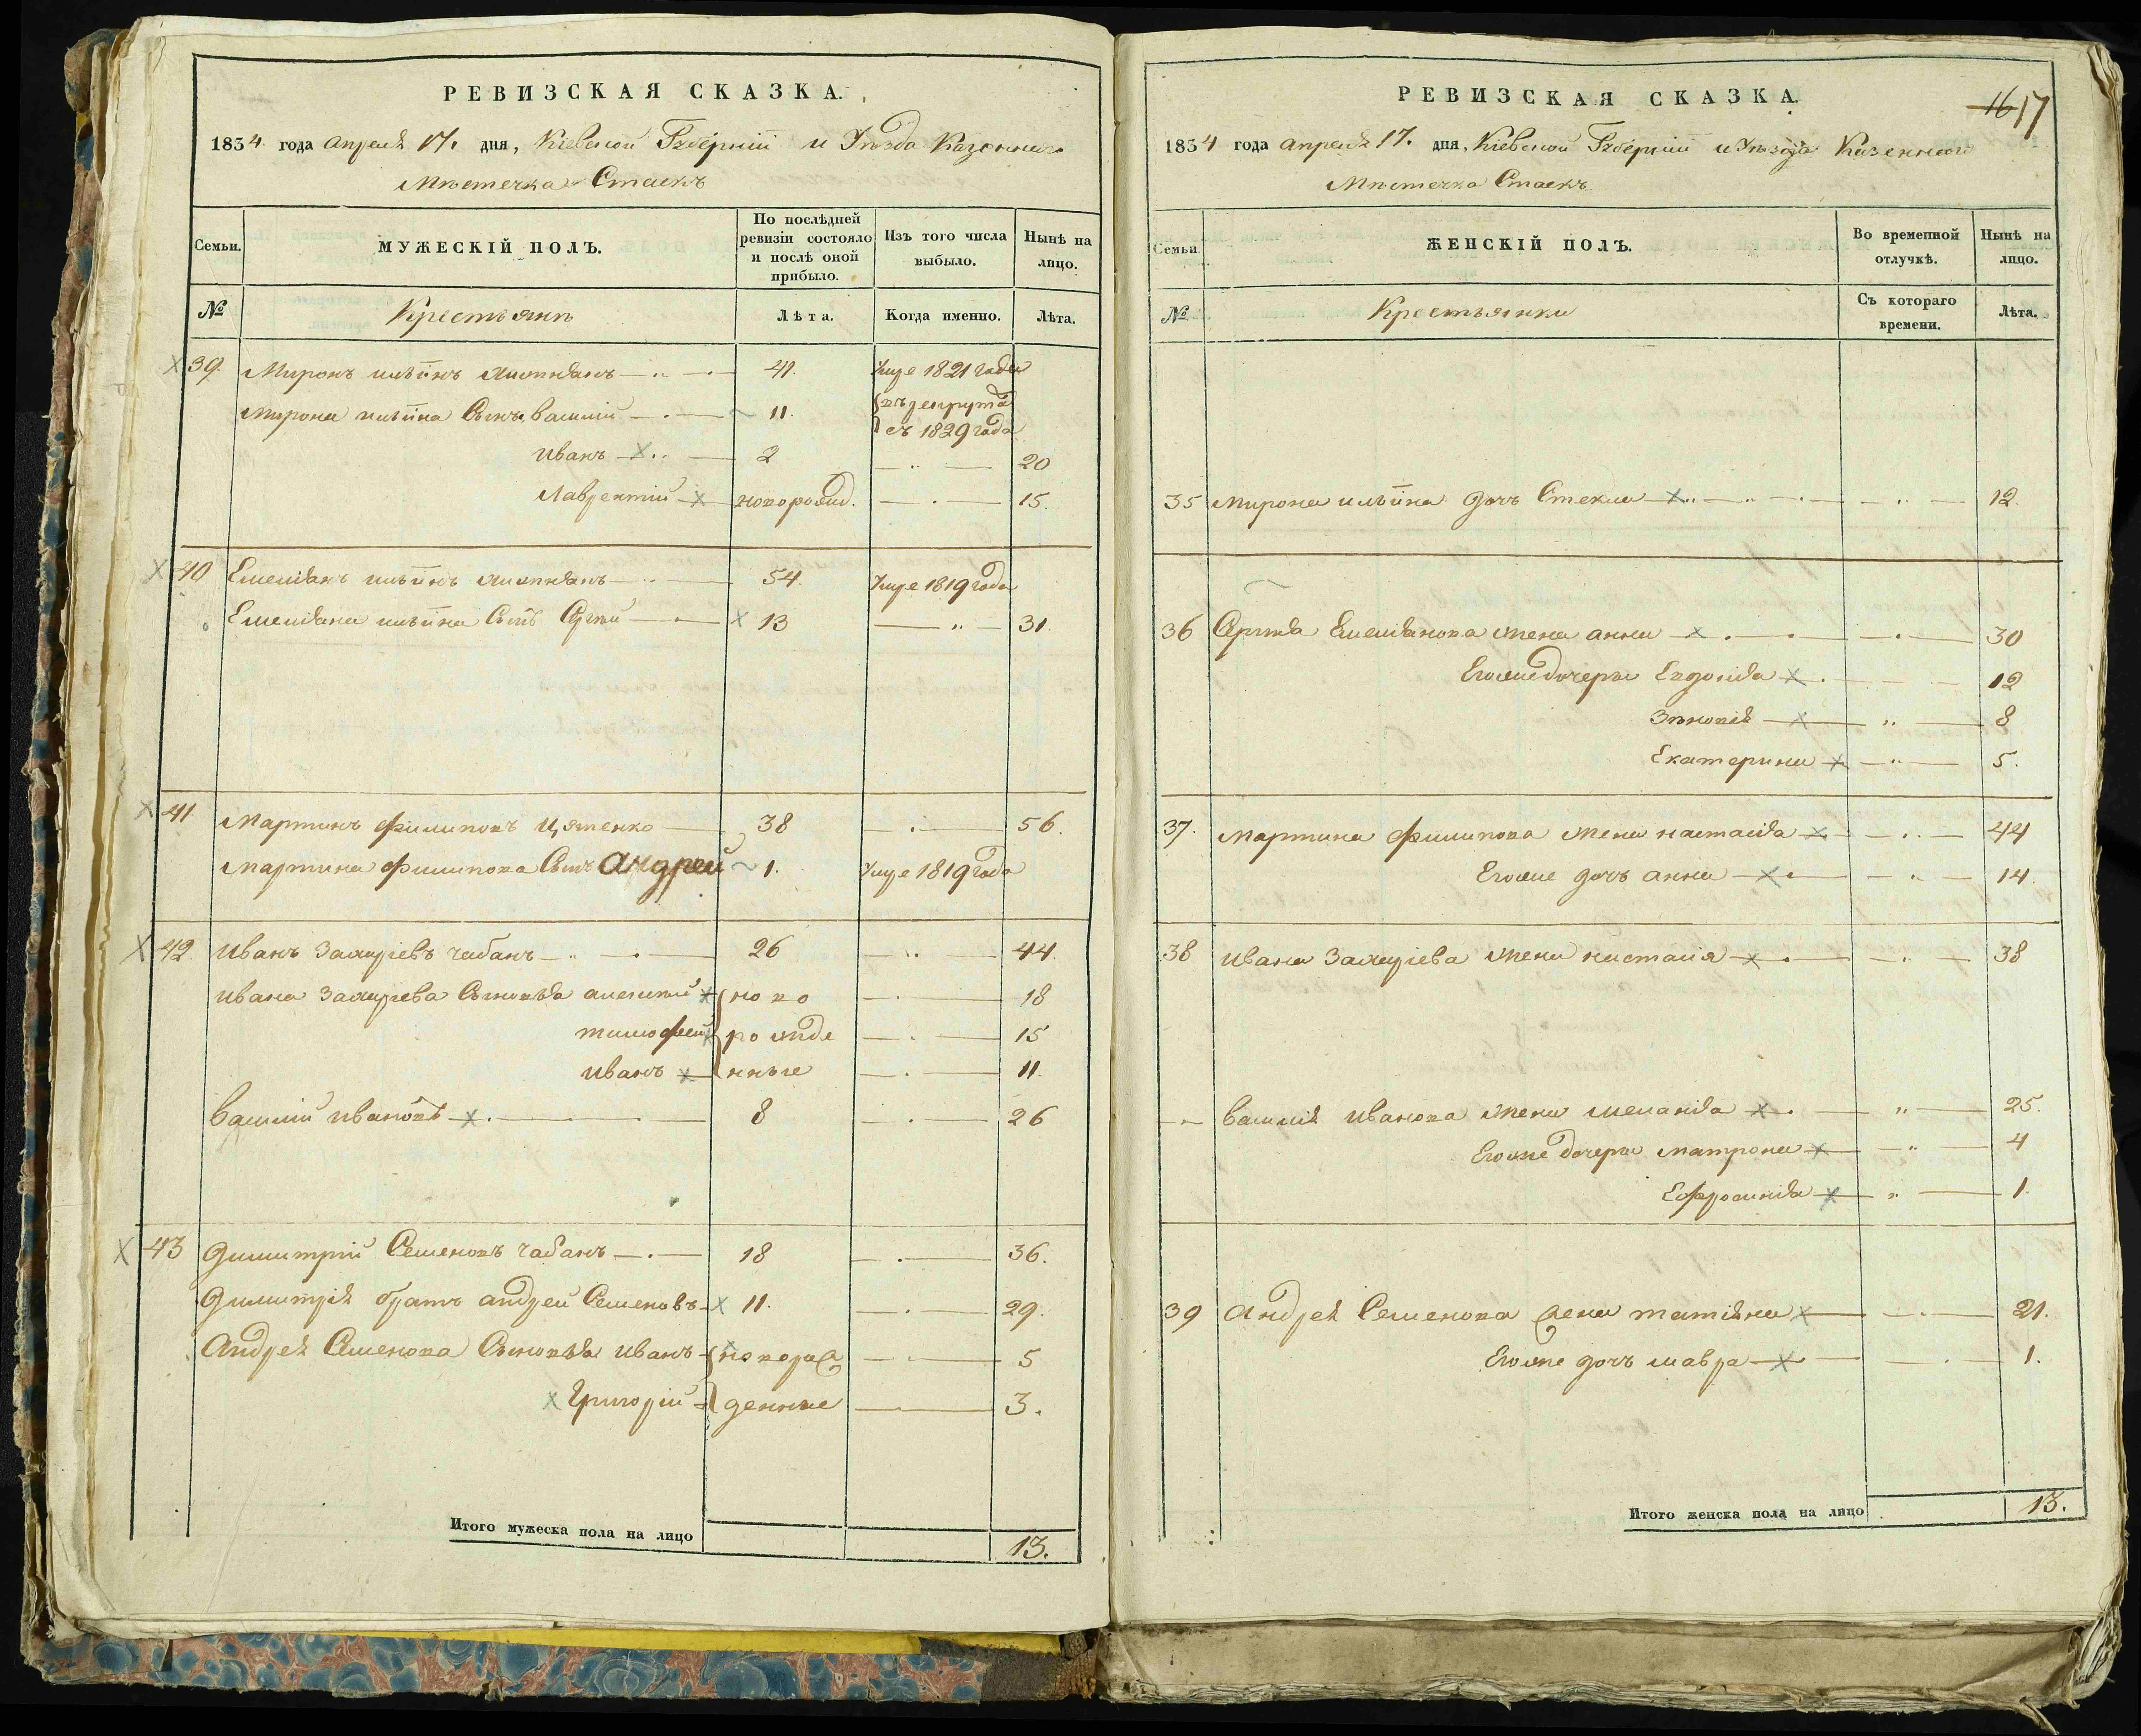 РЕВИЗСКАЯ СКАЗКА.
1834 года апреля 17. дня, Кіевской Губерніи и Уезда Казеннаго
Местечка Стаекъ
Семьи.
МУЖЕСКІЙ ПОЛЪ.
По послѣдней ревизіи состояло и послѣ оной прибыло.
Изъ того числа выбыло.
Нынѣ на лицо.
№
Крестьяне
Лѣта.
Когда именно.
Лѣта.
39. Миронъ ильинъ 41. Умре 1821 года
Мирона ильина Сынъ Василій 11. въ рекруты съ 1829 года
Иванъ 2 20
Лаврентій новорожд. 15.
40 Емельянъ ильинъ 54. Умре 1819 года
Емельяна ильина Сынъ Сергій 13 31.
41 Мартинъ Филиповъ Цятенко 38 56.
Мартина Филипова Сынъ Андрей 1. Умре 1819 года
42. Иванъ Захаріевъ чабанъ 26 44.
Ивана Захаріева Сыновья алексий ново 18
тимофей рожде 15
Иванъ нные 11.
Василій Ивановъ 8 26
43 Димитрій Семеновъ чабанъ 18 36.
Димитрія братъ андрей Семеновъ 11. 29.
Андрея Семенова Сыновья иванъ новорож 5
Григорій денные 3.
Итого мужеска пола на лицо 13.
РЕВИЗСКАЯ СКАЗКА.
16 17
1834 года апреля 17. дня, Кіевской Губерніи и Уезда Казеннаго
Местечка Стаекъ
Семьи
ЖЕНСКІЙ ПОЛЪ.
Во временной отлучкѣ.
Нынѣ на лицо.
№
Крестьянки
Съ котораго времени.
Лѣта.
35 Мирона ильина дочь Стекла 12.
36 Сергія Емельянова жена анна 30
Егоже дочери Евдокія 12
Зѣновія 8
Екатерина 5.
37. Мартина Филипова жена настасія 44
Егоже дочь анна 14.
38 Ивана Захаріева жена настасія 38
Василія Иванова жена меланія 25.
Егоже дочери матрона 4
Ефросинія 1.
39 Андрея Семенова жена татіяна 21.
Егоже дочь мавра 1.
Итого женска пола на лицо 13.